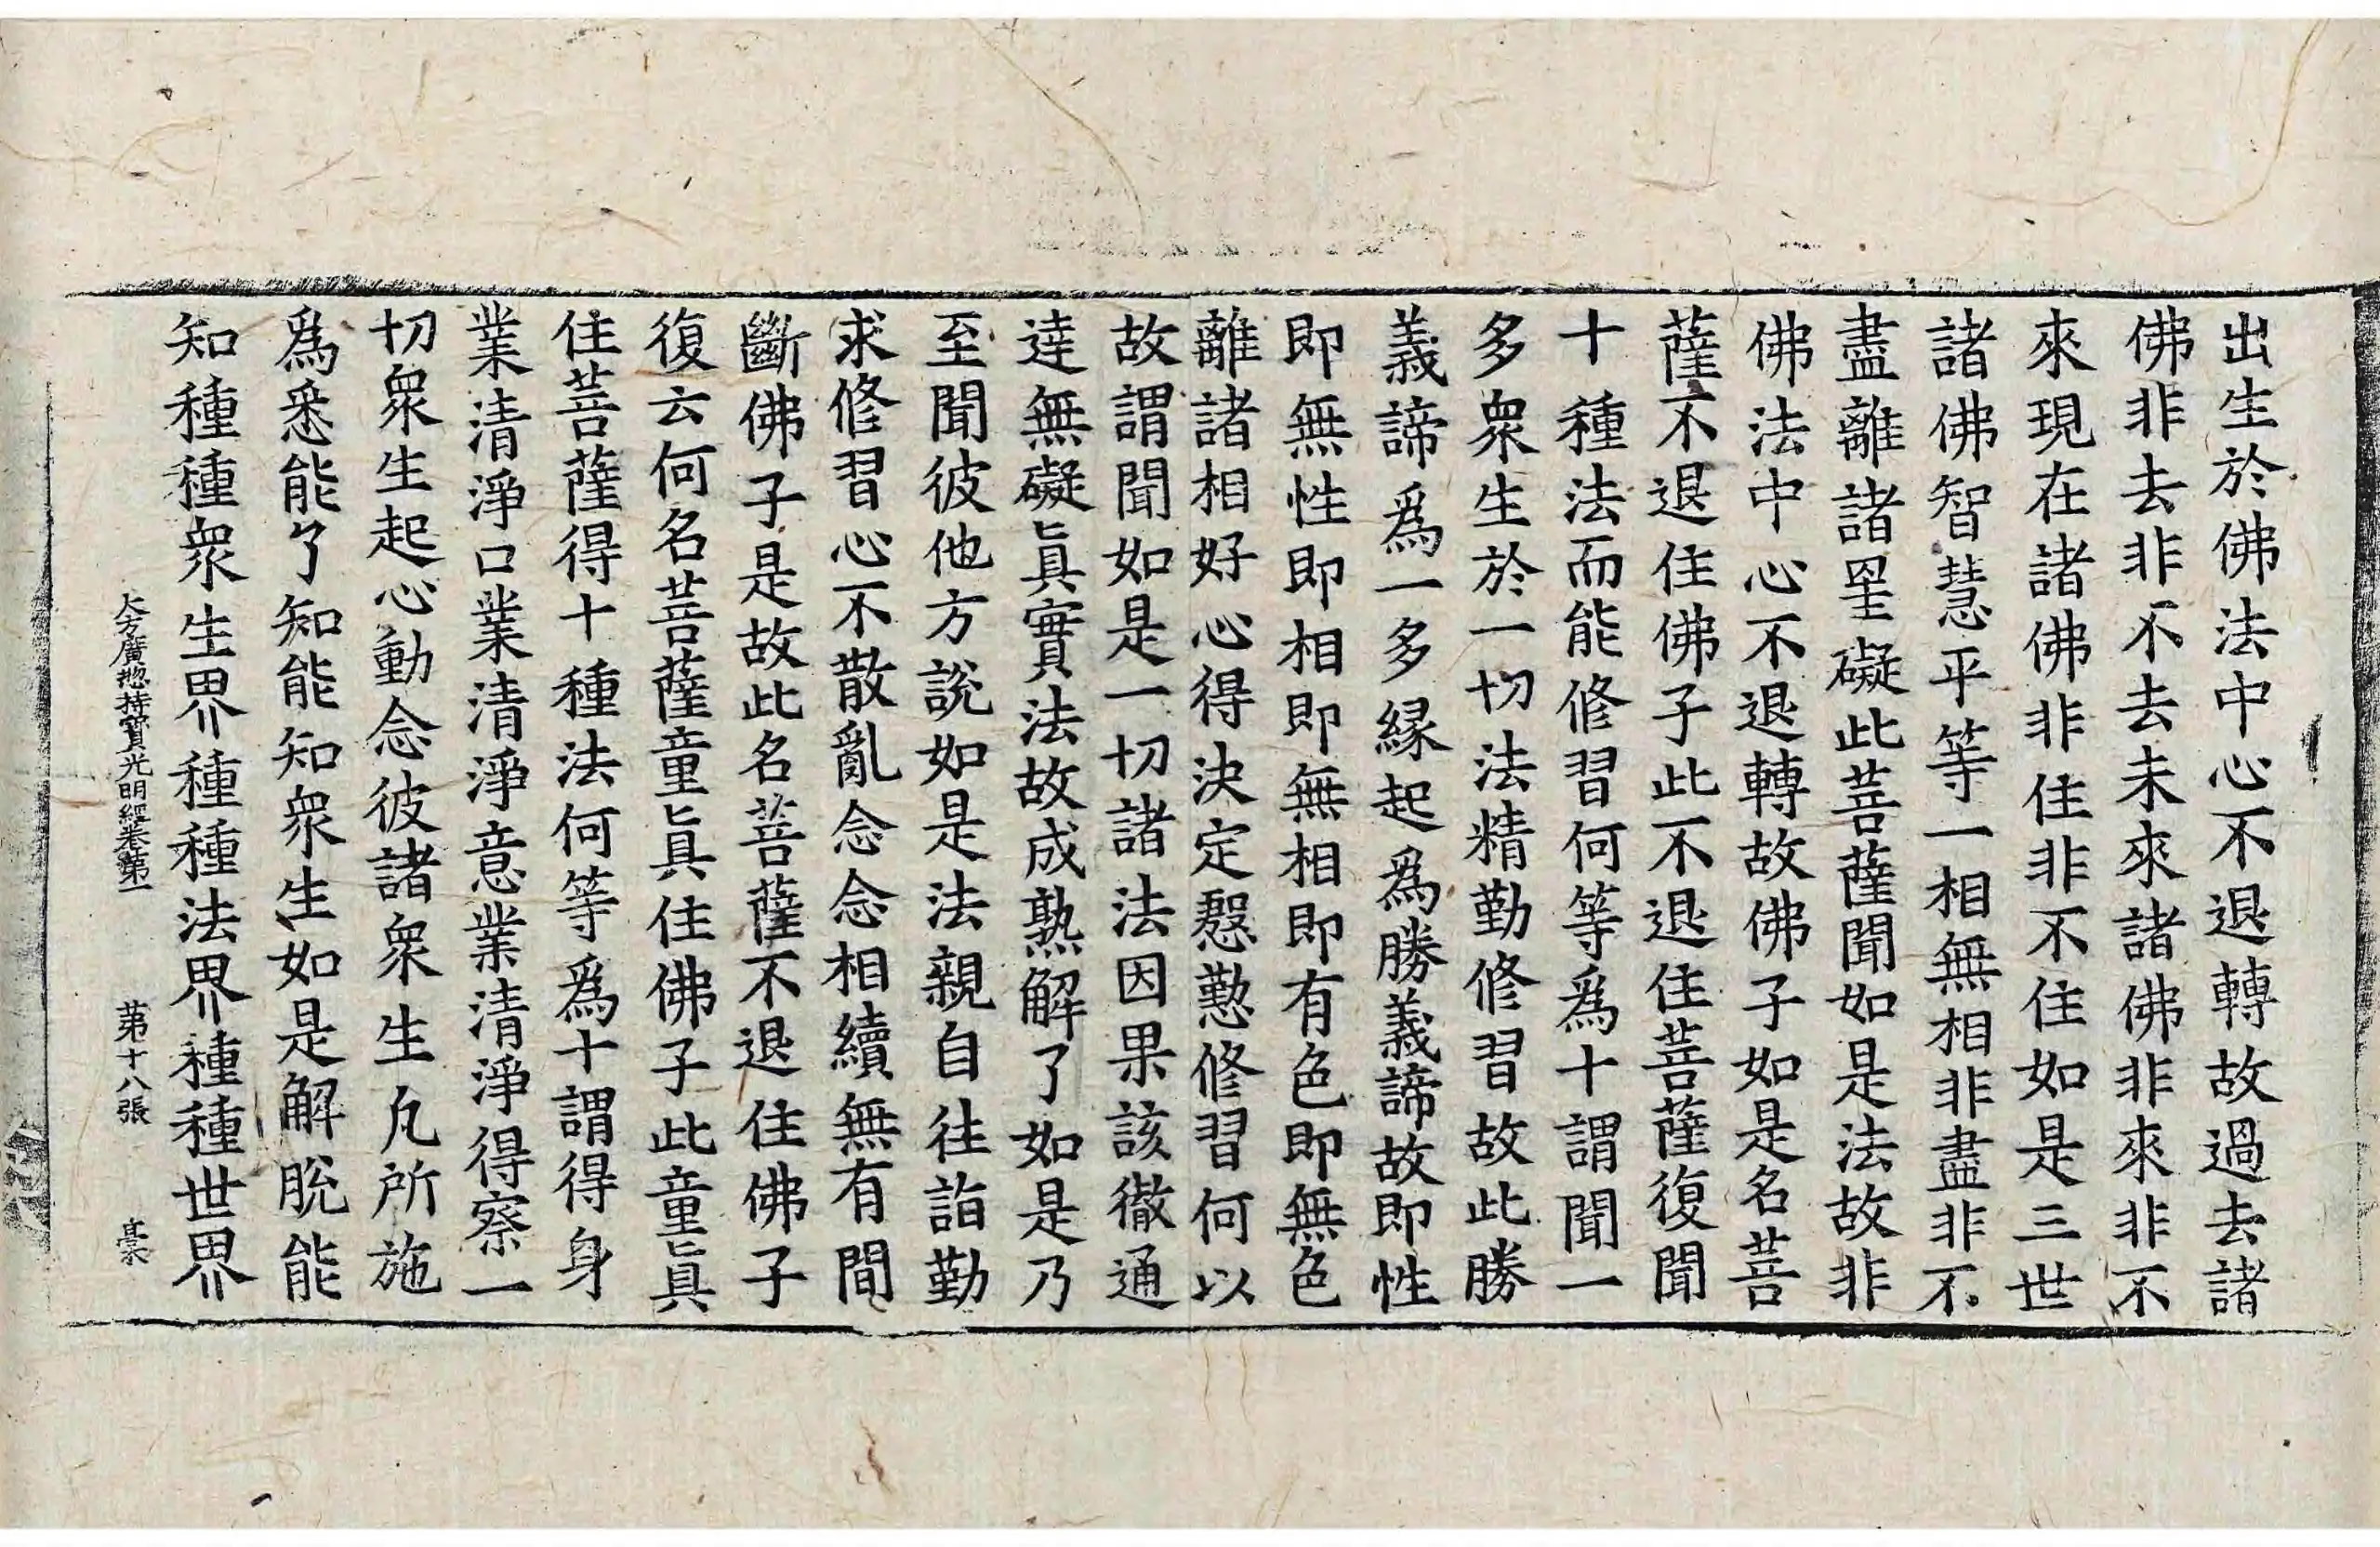 出生於佛法中心不退轉故過去諸
佛非去非不去未來諸佛非來非不
來現在諸佛非住非不住如是三世
諸佛智慧平等一相無相非盡非不
盡離諸罣礙此菩薩聞如是法故非
佛法中心不退轉故佛子如是名菩
薩不退住佛子此不退住菩薩復聞
十種法而能修習何等爲十謂聞一
多衆生於一切法精勤修習故此勝
義諦爲一多縁起爲勝義諦故即性
即無性即相即無相即有色即無色
離諸相好心得決定慇懃修習何以
故謂聞如是一切諸法因果該徹通
達無礙眞實法故成熟解了如是乃
至聞彼他方說如是法親自往詣勤
求修習心不散亂念念相續無有間
斷佛子是故此名菩薩不退住佛子
復云何名菩薩童眞住佛子此童眞
住菩薩得十種法何等爲十謂得身
業清淨口業清淨意業清淨得察一
切衆生起心動念彼諸衆生凡所施
爲悉能了知能知衆生如是解脫能
知種種衆生界種種法界種種世界
大方廣揔持寶光明經卷第一 第十八張 槀